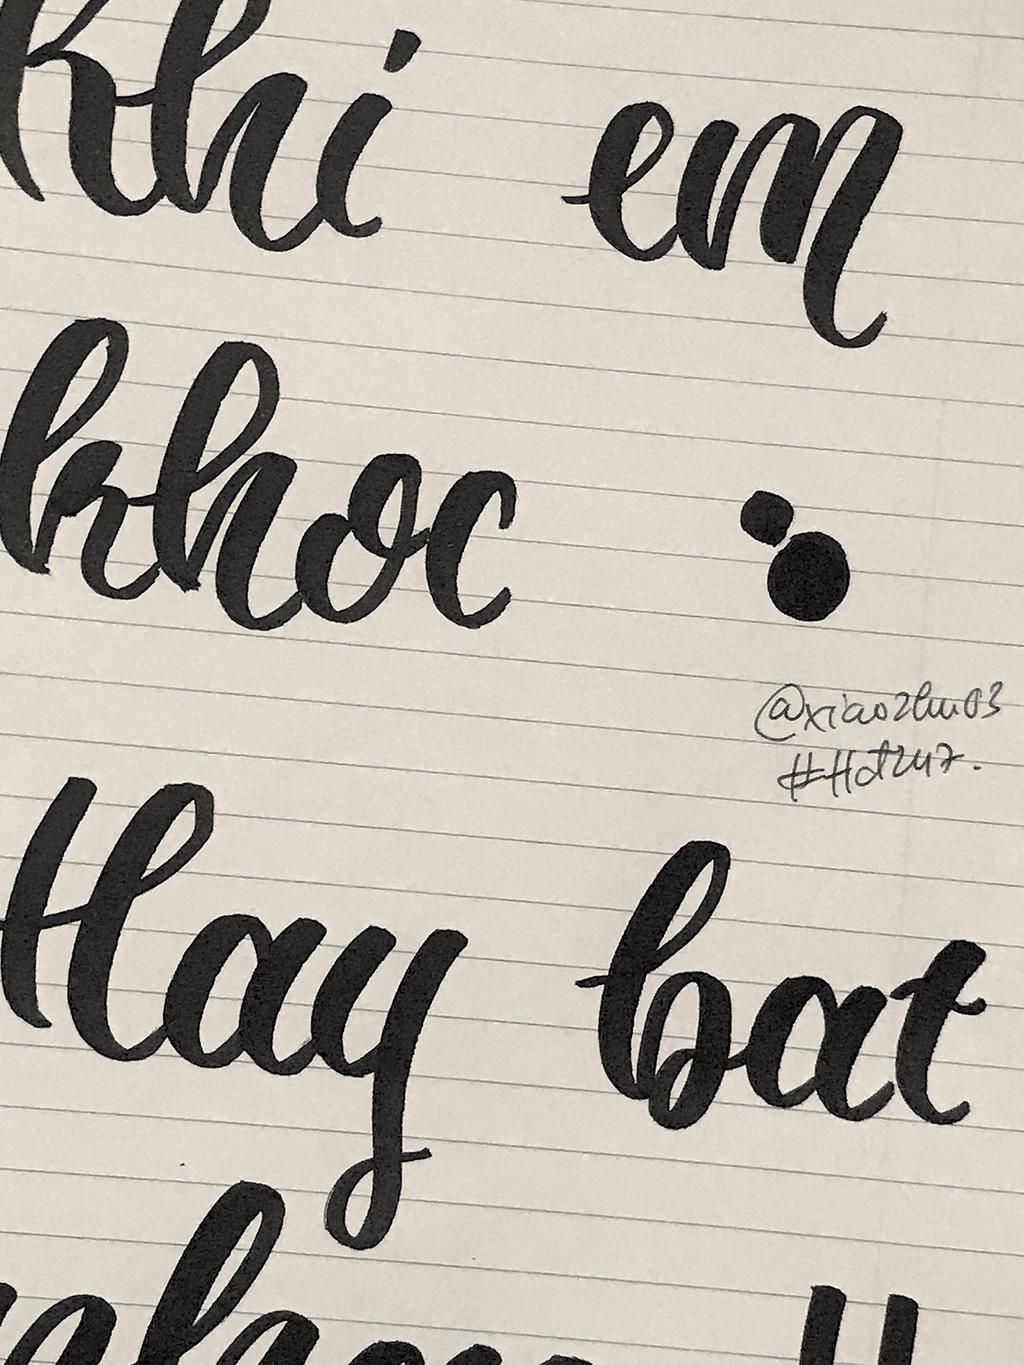 Khi em
khoc :
@xiaozhu03
#Hd247.
Hay bat